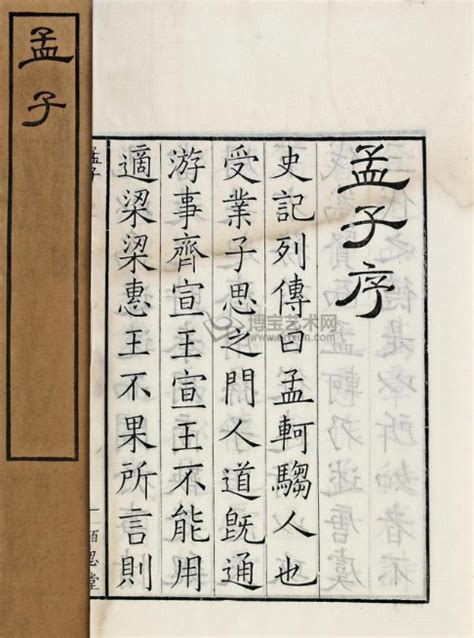 孟子
孟子序
史記列傳曰孟軻騶人也
受業子思之門人道旣通
游事齊宣王宣王不能用
適梁梁惠王不果所言則
孟子
博宝艺术网